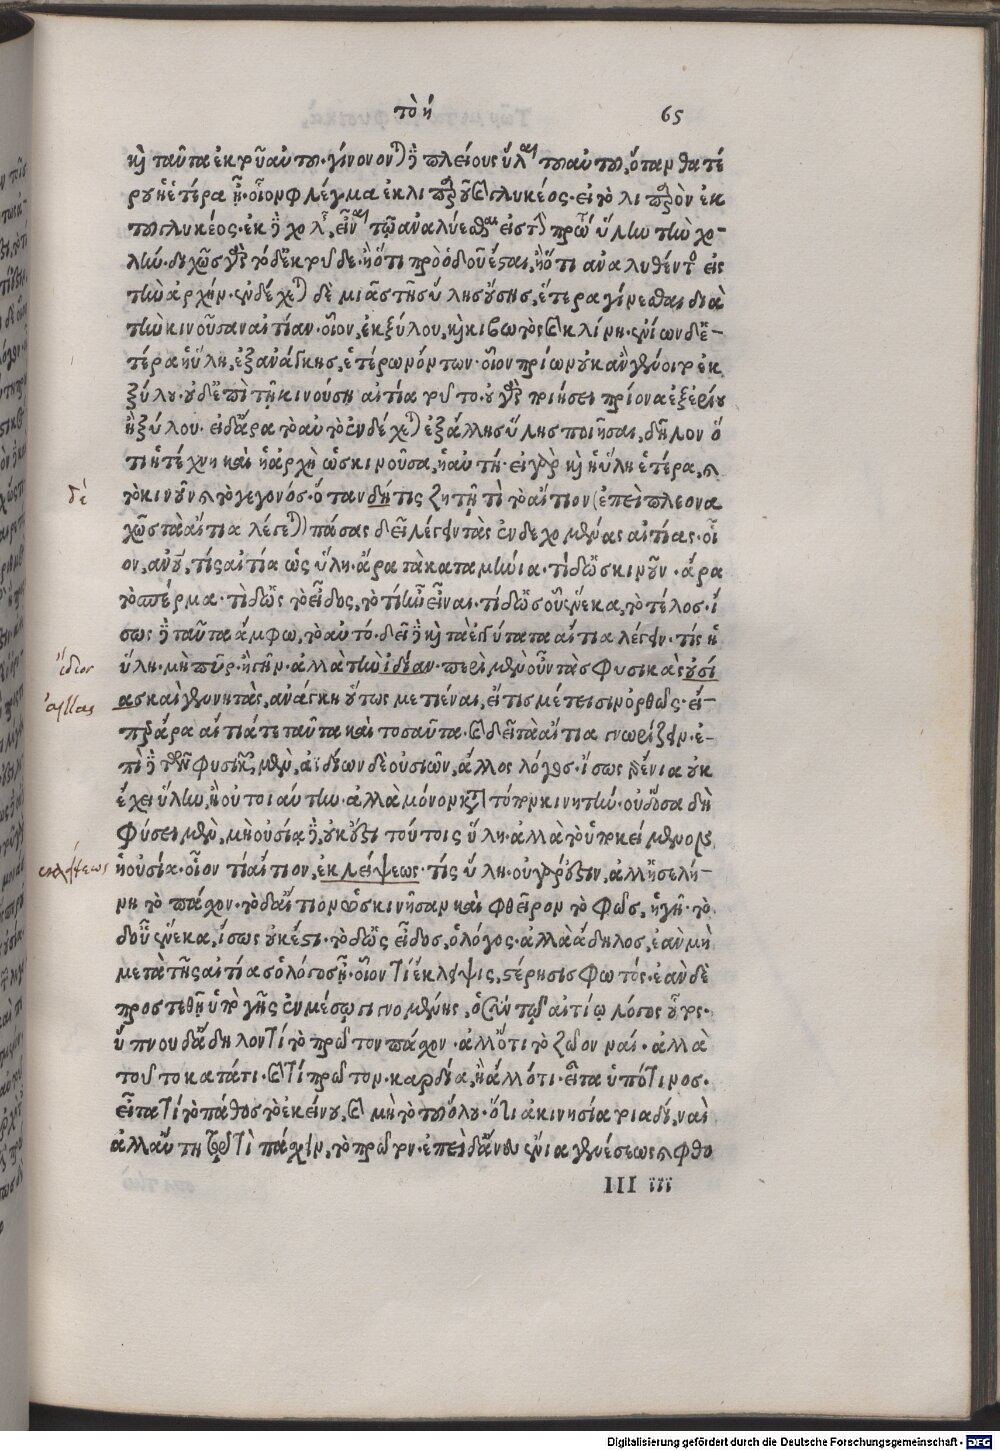 τὸ η 65
καὶ ταῦτα ἐκ τοῦ αὐτοῦ. γίνονται δὲ πλείους ὗλαι τοῦ αὐτοῦ, ὅταν θατέ
ρου ἡ ἑτέρα ᾖ. οἷον φλέγμα ἐκ λιπαροῦ καὶ γλυκέος. εἰ τὸ λιπαρὸν ἐκ
τοῦ γλυκέος. ἐκ δὲ χολῆς, εἶναι τῷ ἀναλύεσθαι εἰς τὴν πρώτην ὕλην τὴν χο-
λήν. διχῶς γὰρ τόδ' ἐκ τοῦδε. ἢ ὅτι πρὸ ὁδοῦ ἔσται, ἢ ὅτι ἀναλυθέντος εἰς
τὴν ἀρχήν. ἐνδέχεται δὲ μιᾶς τῆς ὕλης οὔσης, ἕτερα γίνεσθαι διὰ
τὴν κινοῦσαν αἰτίαν. οἷον, ἐκ ξύλου, καὶ κιβωτὸς καὶ κλίνη. ἐνίων δ' ἑ-
τέρα ἡ ὕλη, ἐξ ἀνάγκης, ἑτέρων ὄντων. οἷον πρίων οὐκ ἂν γένοιτο ἐκ
ξύλου. οὐδ' ἐπὶ τῇ κινούσῃ αἰτίᾳ τοῦτο. οὐ γὰρ ποιήσει πρίονα ἐξ ἐρίου
ἢ ξύλου. εἰ δ' ἄρα τὸ αὐτὸ ἐνδέχεται ἐξ ἄλλης ὕλης ποιῆσαι, δῆλον ὅ
τι ἡ τέχνη καὶ ἡ ἀρχὴ ὡς κινοῦσα, ἡ αὐτή. εἰ γὰρ καὶ ἡ ὕλη ἑτέρα, καὶ
δέ τὸ κινοῦν καὶ τὸ γεγονός. ὅταν δή τις ζητῇ τί τὸ αἴτιον (ἐπεὶ πλεονα
χῶς τὰ αἴτια λέγεται) πάσας δεῖ λέγειν τὰς ἐνδεχομένας αἰτίας. οἷ
ον, ἀνθρώπου, τίς αἰτία ὡς ὕλη. ἆρα τὰ καταμήνια. τί δ' ὡς κινοῦν. ἆρα
τὸ σπέρμα. τί δ' ὡς τὸ εἶδος, τὸ τί ἦν εἶναι. τί δ' ὡς οὗ ἕνεκα, τὸ τέλος. ἴ
σως δὲ ταῦτα ἄμφω, τὸ αὐτό. δεῖ δὲ καὶ τὰ ἐγγύτατα αἴτια λέγειν. τίς ἡ
ἴδιον ὕλη. μὴ πῦρ, ἢ γῆν. ἀλλὰ τὴν ἰδίαν. περὶ μὲν οὖν τὰς φυσικὰς οὐσί
ἀλλὰς ας καὶ γεννητὰς, ἀνάγκη οὕτως μετιέναι, εἴ τις μέτεισιν ὀρθῶς. εἴ-
περ ἄρα αἴτιά τε ταῦτα καὶ τοσαῦτα. καὶ δεῖ τὰ αἴτια γνωρίζειν. ἐ-
πὶ δὲ τῶν φυσικῶν μὲν, ἀϊδίων δὲ οὐσιῶν, ἄλλος λόγος. ἴσως γὰρ ἔνια οὐκ
ἔχει ὕλην, ἢ οὐ τοιαύτην. ἀλλὰ μόνον κατὰ τόπον κινητήν. οὐδ' ὅσα δὴ
φύσει μὲν, μὴ οὐσία δὲ, οὐκ ἔστι τούτοις ὕλη. ἀλλὰ τὸ ὑποκείμενον
εκλήψεως ἡ οὐσία. οἷον τί αἴτιον, ἐκλείψεως. τίς ὕλη. οὐ γὰρ ἔστιν, ἀλλ' ἡ σελή-
νη τὸ πάσχον. τὸ δ' αἴτιον ὡς κινῆσαν καὶ φθεῖρον τὸ φῶς, ἡ γῆ. τὸ
δ' οὗ ἕνεκα, ἴσως οὐκ ἔστι. τὸ δ' ὡς εἶδος, ὁ λόγος. ἀλλὰ ἄδηλος, ἐὰν μὴ
μετὰ τῆς αἰτίας ὁ λόγος ᾖ. οἷον τί ἔκλειψις, στέρησις φωτός. ἐὰν δὲ
προστεθῇ ὑπὸ γῆς ἐν μέσῳ γινομένης, ὁ σὺν τῷ αἰτίῳ λόγος οὗτος.
ὕπνου δ' ἄδηλον τί τὸ πρῶτον πάσχον. ἀλλ' ὅτι τὸ ζῷον ναί. ἀλλὰ
τοῦτο κατὰ τί. καὶ τί πρῶτον. καρδία, ἢ ἄλλό τι. εἶτα ὑπό τινος.
εἶτα τί τὸ πάθος τὸ ἐκείνου, καὶ μὴ τοῦ ὅλου. ὅτι ἀκινησία τοιαδί, ναὶ
ἀλλ' αὕτη τῷ τὶ πάσχειν, τὸ πρῶτον. ἐπεὶ δ' ἄνευ ἔνια γενέσεως καὶ φθο
III iii
Digitalisierung gefördert durch die Deutsche Forschungsgemeinschaft - DFG